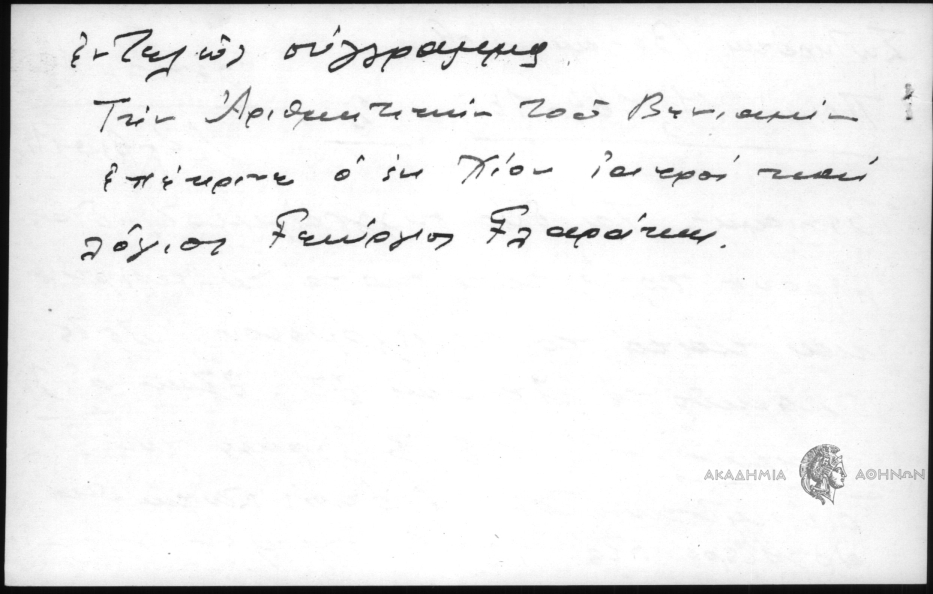 ἐντελῶς σύγγραμμα.
Τὴν Ἀριθμητικὴν τοῦ Βενιαμὶν
ἐπέκρινε ὁ ἐκ Χίου ἰατρὸς καὶ
λόγιος Γεώργιος Γλαράκης.
ΑΚΑΔΗΜΙΑ ΑΘΗΝΩΝ